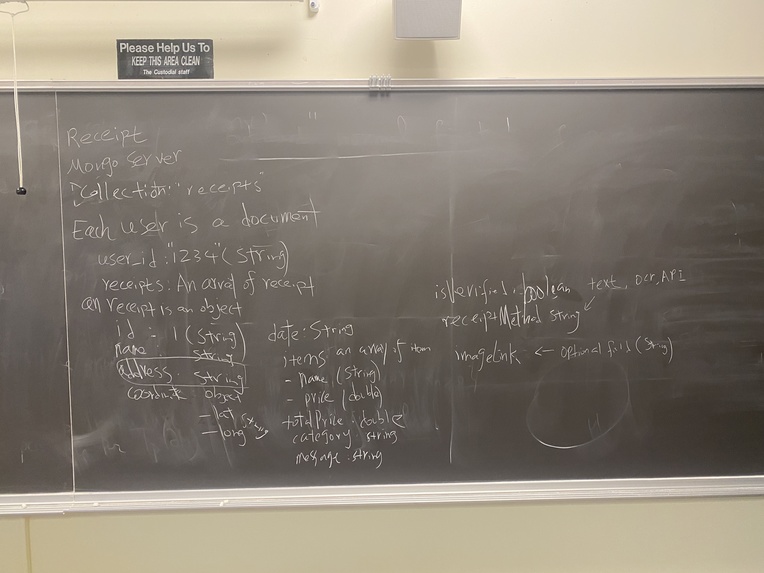 Please Help Us To
KEEP THIS AREA CLEAN
The Custodial staff
Receipt
Mongo Server
"Collection: "receipts"
Each user is a document
user_id: "1234" (string)
receipts: An array of receipt
receipt is an object
id : 1 (string)
name string
address. string
coordinate object
- lat string
- long
date: String
items an array of item
- name (string)
- price (double)
total Price: double
category: string
message: string
isVerified: boolean
receiptMethod string ← text, OCR, API
imageLink ← optional field (string)